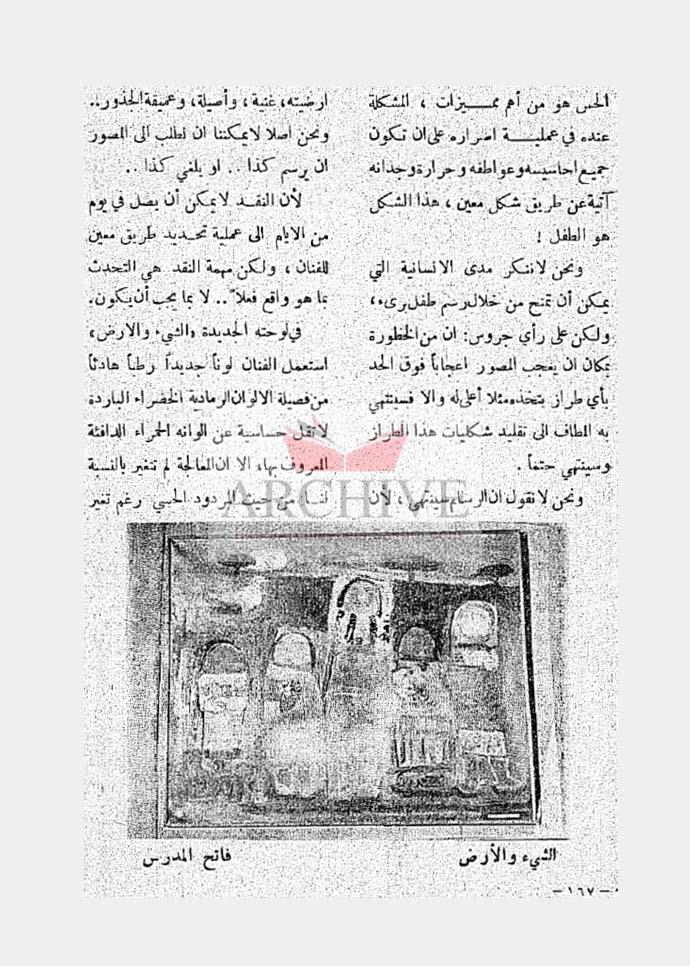 الحس هو من أهم مميزات ، المشكلة
عنده في عملية اصراره على ان تكون
جميع احاسيسه وعواطفه وحرارة وجدانه
آتية عن طريق شكل معين ، هذا الشكل
هو الطفل !
ونحن لا ننكر مدى الانسانية التي
يمكن أن تمنح من خلال رسم طفل بريء ،
ولكن على رأي جروس : ان من الخطورة
بمكان ان يعجب المصور اعجاباً فوق الحد
بأي طراز يتخذه مثلا أعلى له والا فسينتهي
به المطاف الى تقليد شكليات هذا الطراز
وسينتهي حتماً .
ونحن لا نقول ان الرسام سينتهي ، لأن
ارضيته ، غنية ، وأصيلة ، وعميقة الجذور ..
ونحن اصلا لا يمكننا ان نطلب الى المصور
ان يرسم كذا .. او يلغي كذا ..
لأن النقد لا يمكن أن يصل في يوم
من الايام الى عملية تحديد طريق معين
للفنان ، ولكن مهمة النقد هي التحدث
بما هو واقع فعلاً .. لا بما يجب أن يكون .
في لوحته الجديدة «الشيء والارض ،
استعمل الفنان لوناً جديداً رطباً هادئاً
من فصيلة الالوان الرمادية الخضراء الباردة
لا تقل حساسية عن الوانه الحمراء الدافئة
المعروف بها ، الا ان المعالجة لم تتغير بالنسبة
لنا من حيث المردود الحسي رغم تغير
ARCHIVE
الشيء والأرض
فاتح المدرس
- ١٦٧ -